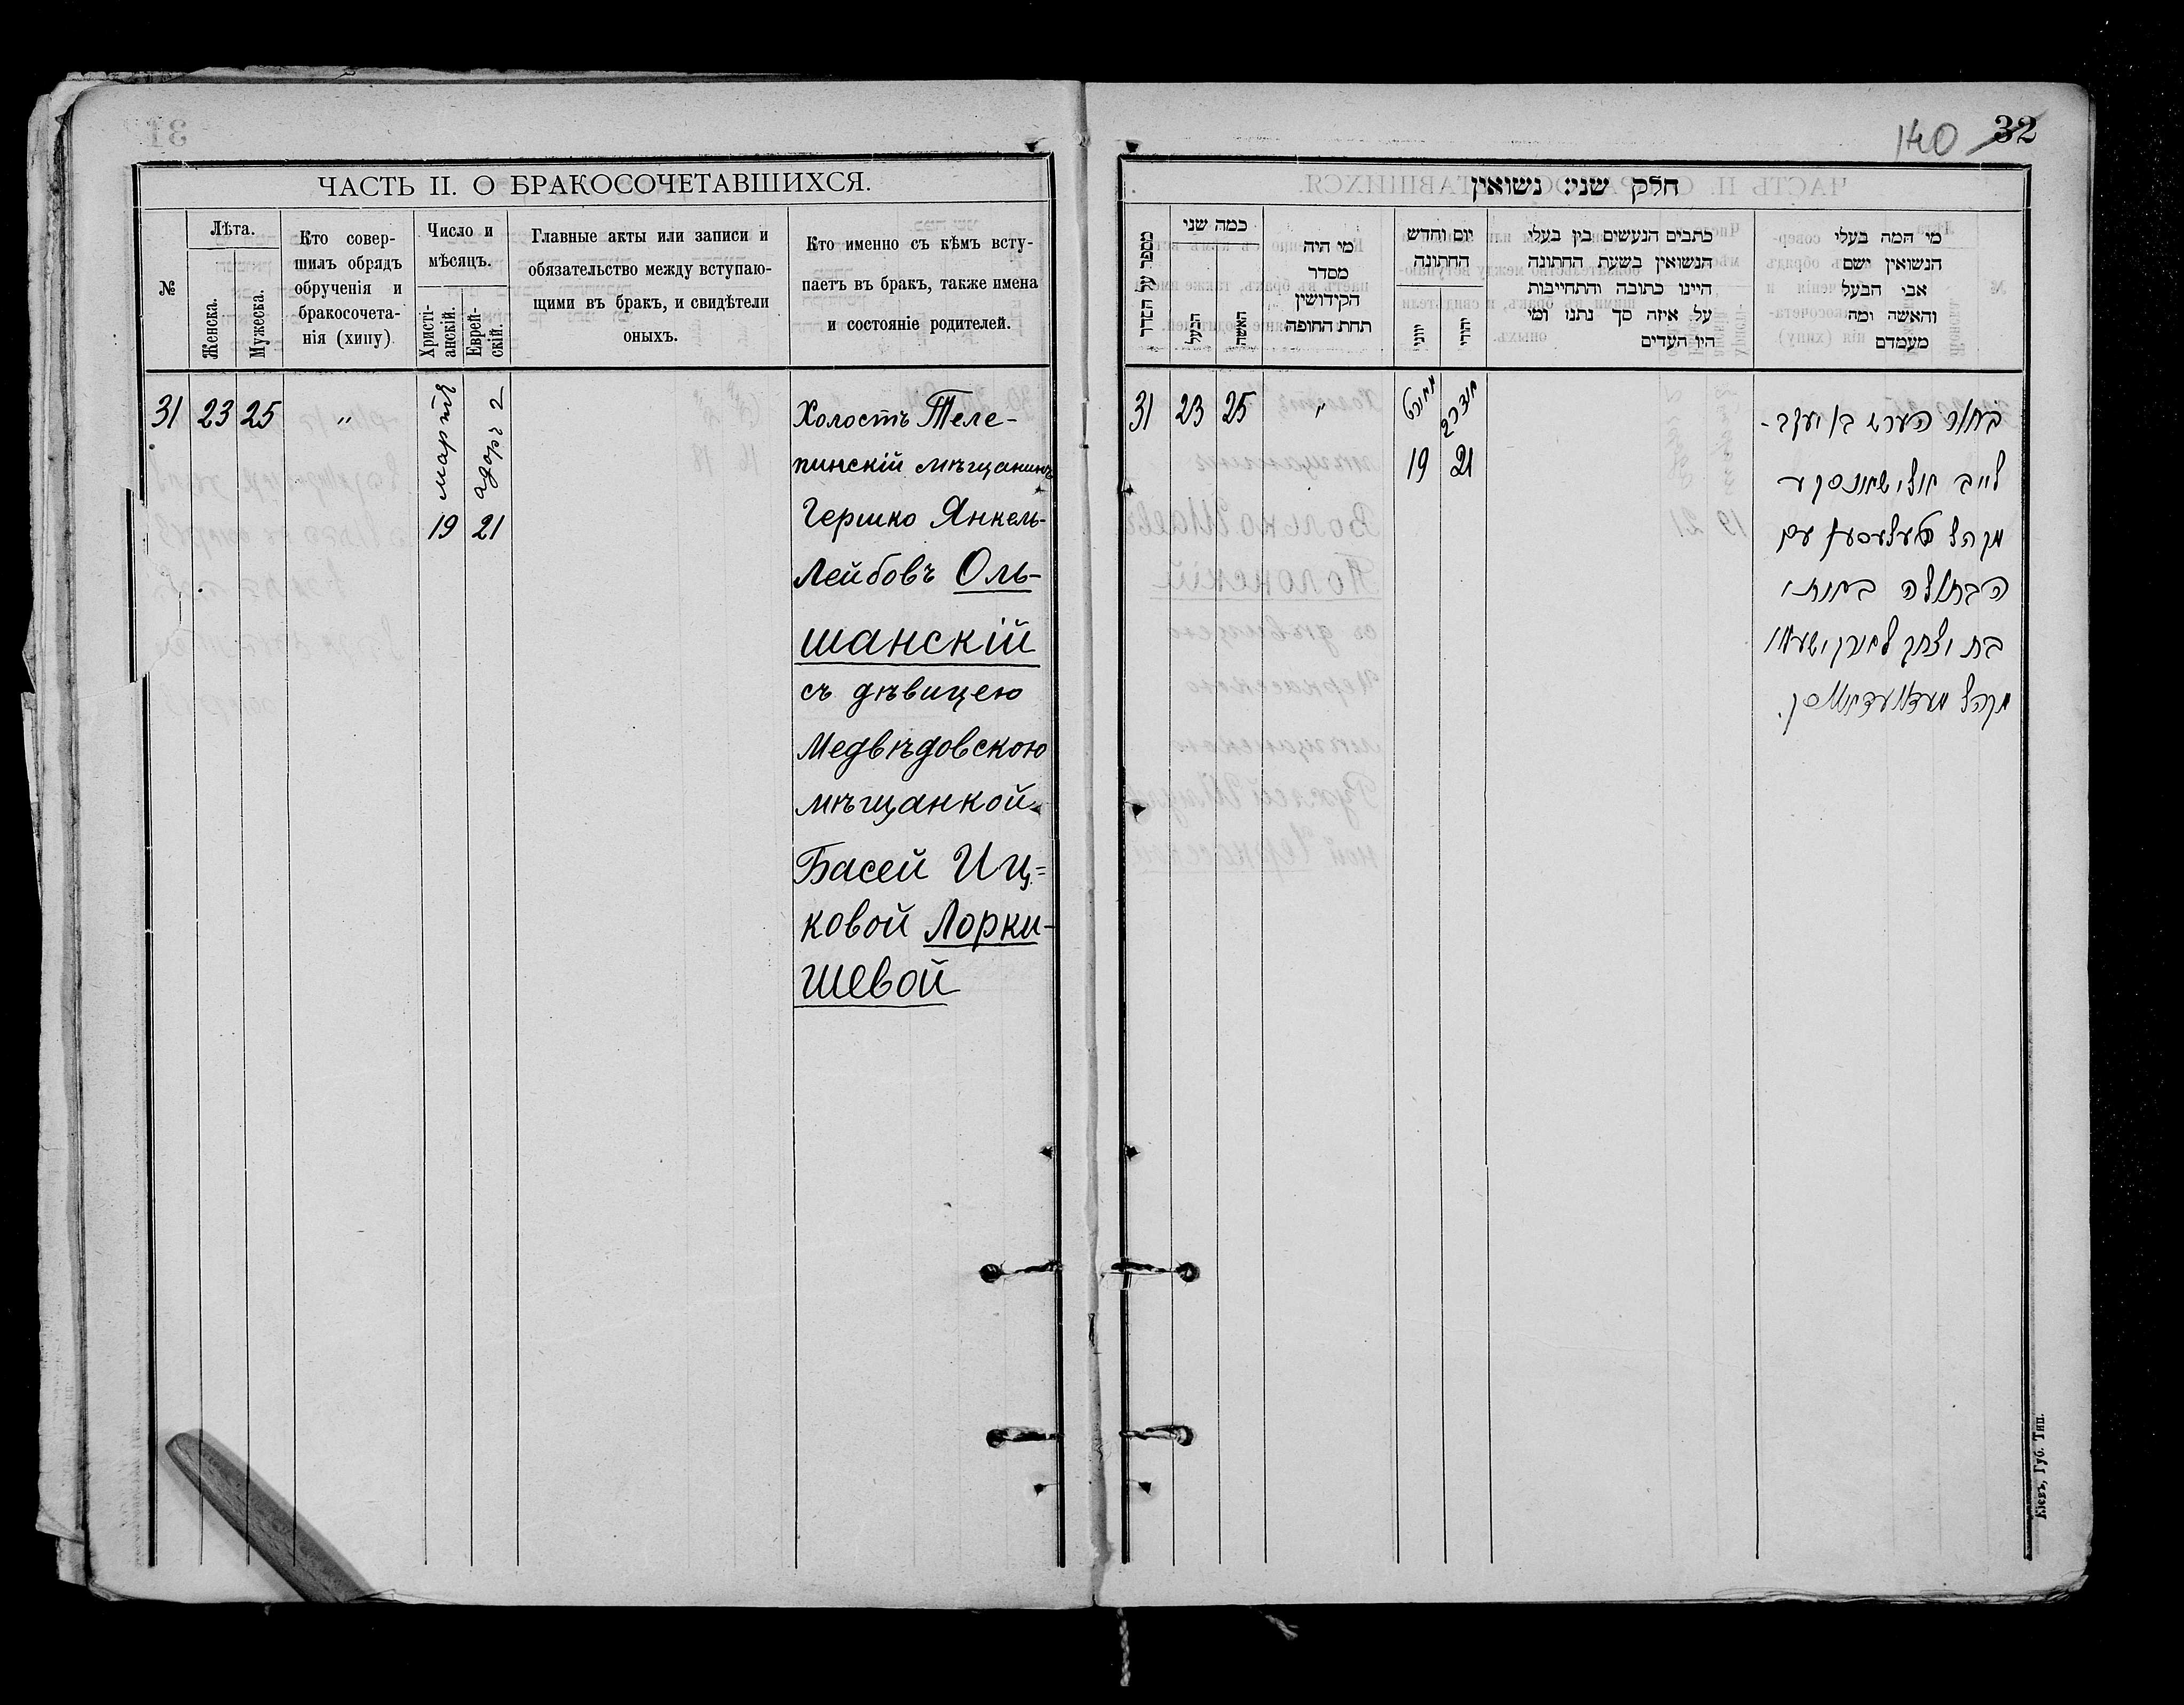 ЧАСТЬ II. О БРАКОСОЧЕТАВШИХСЯ.
№
Лѣта.
Женска.
Мужеска.
Кто совер-
шилъ обрядъ
обрученія и
бракосочета-
нія (хипу)
Число и
мѣсяцъ.
Христі-
анскій.
Еврей-
скій.
Главные акты или записи и
обязательство между вступаю-
щими въ бракъ, и свидѣтели
оныхъ.
Кто именно съ кѣмъ всту-
паетъ въ бракъ, также имена
и состояніе родителей.
31 23 25 "
марта
19
адоръ 2
21
Холостъ Теле-
пинскій мѣщанинъ
Гершко Янкель-
Лейбовъ Оль-
шанскій
съ дѣвицею
Медвѣдовскою
мѣщанкой
Басей Иц=
ковой Лорки-
шевой
140 32
חלק שני: נשואין
מספר על הסדר
כמה שני
הבעל
האשה
מי היה
מסדר
הקידושין
תחת החופה
יום וחדש
החתונה
יוני
יהודי
כתבים הנעשים בין בעלי
הנשואין בשעת החתונה
היינו כתובה והתחייבות
על איזה סך נתנו ומי
היו העדים
מי המה בעלי
הנשואין ושם
אבי הבעל
והאשה ומה
מעמדם
31 23 25 "
מארט
19
אדר 2
21
בחור הערש בן יעקב-
לייב
מקהל עם
הבתולה
בת יצחק
מקהל
Кіевъ, Губ. Тип.